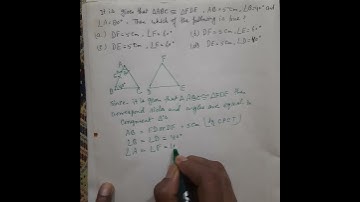 It is given that △ABC ≅ △FDE, AB = 5cm, ∠B=40° and
∠A=80°. Then which of the following is true?
(a) DF = 5cm, ∠F = 60°
(b) DF = 5cm, ∠E = 60°
(c) DE = 5cm, ∠E = 60°
(d) DE = 5cm, ∠D = 40°
A
B
C
F
E
It is given that △ABC ≅ △FDE, Then
sides and angles are equal in
Congruent △'s
AB = FD or DF = 5cm (by CPCT)
∠B = ∠D = 40°
∠A = ∠F =